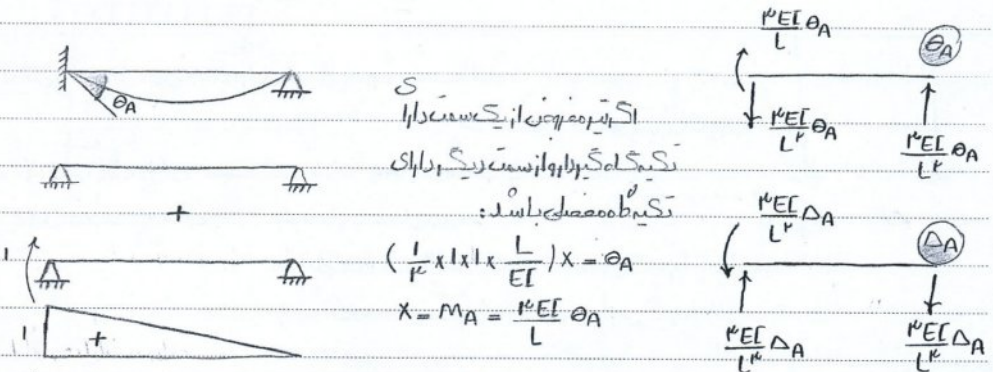 θA
اگر تیر مفروض از یک سمت دارای
تکیه گاه گیردار و از سمت دیگر دارای
تکیه گاه مفصلی باشد:
+
1
1 +
(۱/۳ × ۱ × ۱ × L/EI) X = θA
X = MA = ۳EI/L θA
۳EI/L θA
θA
۳EI/L۲ θA
۳EI/L۲ θA
۳EI/L۲ ΔA
ΔA
۳EI/L۳ ΔA
۳EI/L۳ ΔA